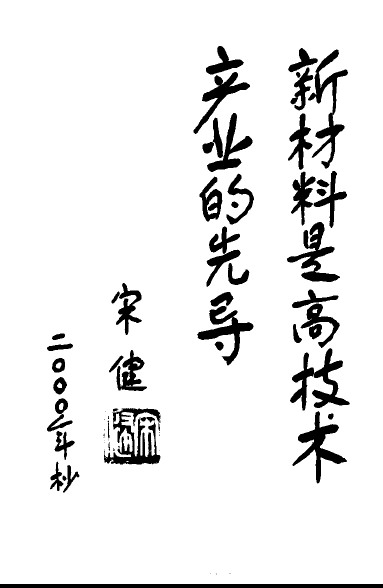 新材料是高技术
产业的先导
宋健
宋健
二〇〇〇年杪